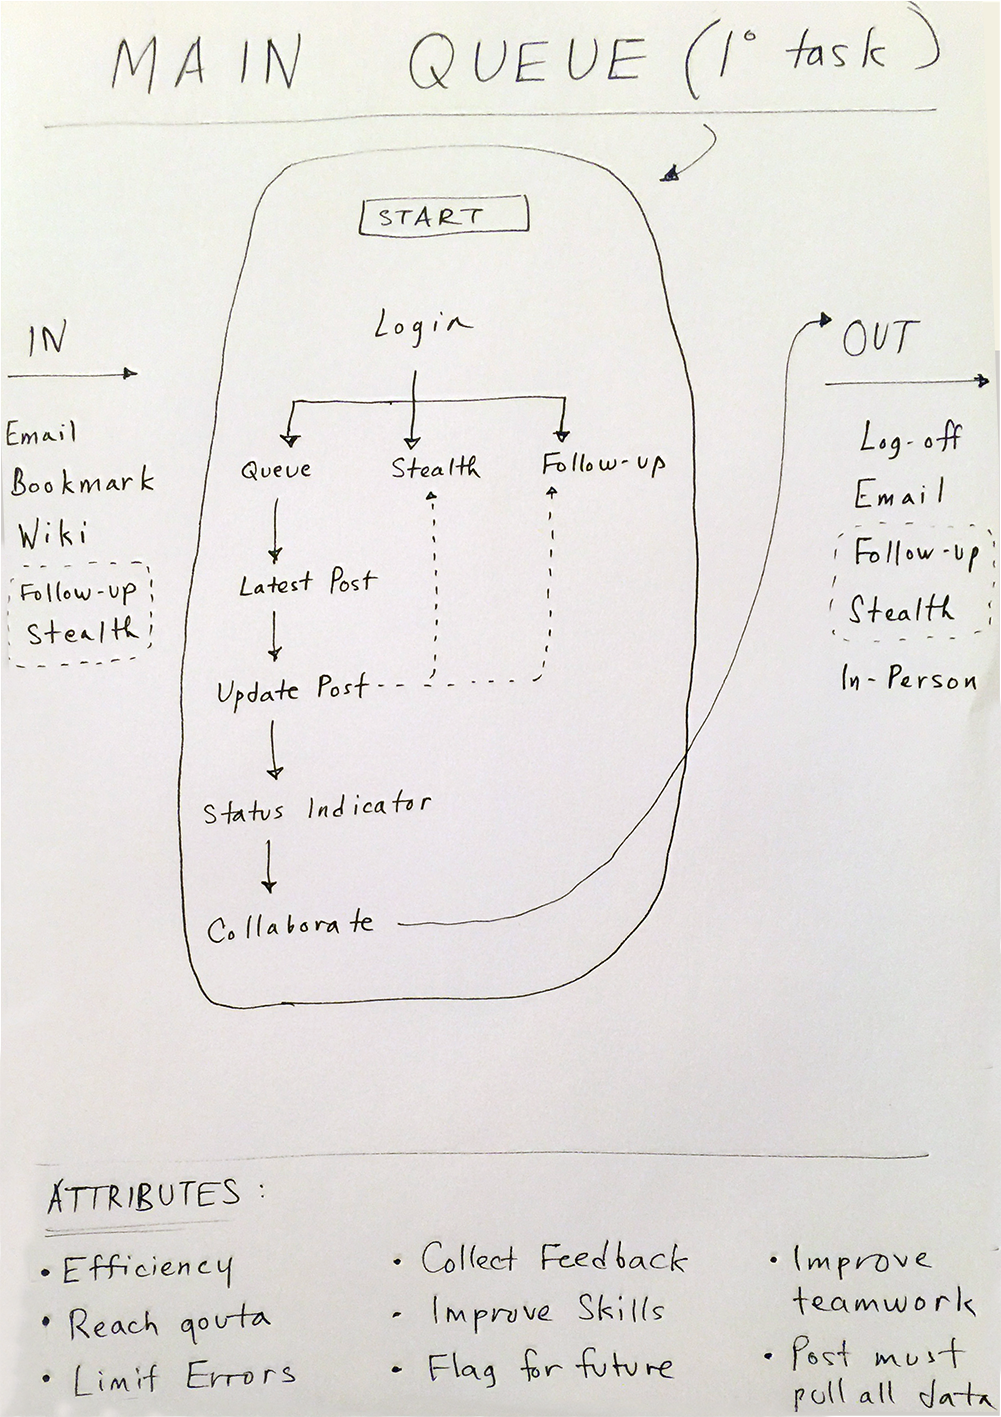 MAIN QUEUE (1° task)
START
Login
IN
Email
Bookmark
Wiki
Follow-up
Stealth
Queue
Stealth
Follow-up
Latest Post
Update Post
Status Indicator
Collaborate
OUT
Log-off
Email
Follow-up
Stealth
In-Person
ATTRIBUTES:
• Efficiency
• Reach qouta
• Limit Errors
• Collect Feedback
- Improve Skills
• Flag for future
• Improve
teamwork
• Post must
pull all data